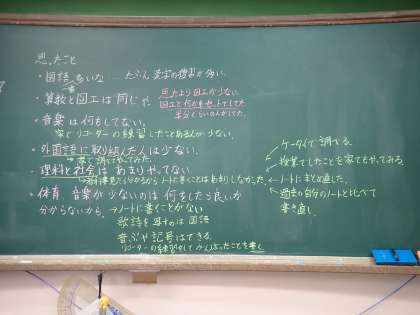 思ったこと
・国語 多いな … たぶん 漢字の練習が多い。
・算数と図工は同じだ。 思たより図工が少ない。
図工と何かを
半分くらいの人がしてた
・音楽は何もしてない。
家でリコーダーの練習したことある人が少ない。
・外国語に取り組んだ人は少ない。
家で調べてみた。
・理科と社会は あまりやってない
ケータイで調べる。
授業でしたことを家でもやってみる。
ノートにまとめ直した。
過去の自分のノートとくらべて
書き直し。
・体育、音楽が少ないのは 何をしたら良いか
分からないから。→ノートに書くことがない
歌詩を写すのは国語
音ぷや記号はできる。
リコーダーの練習をして がんばったことを書く。